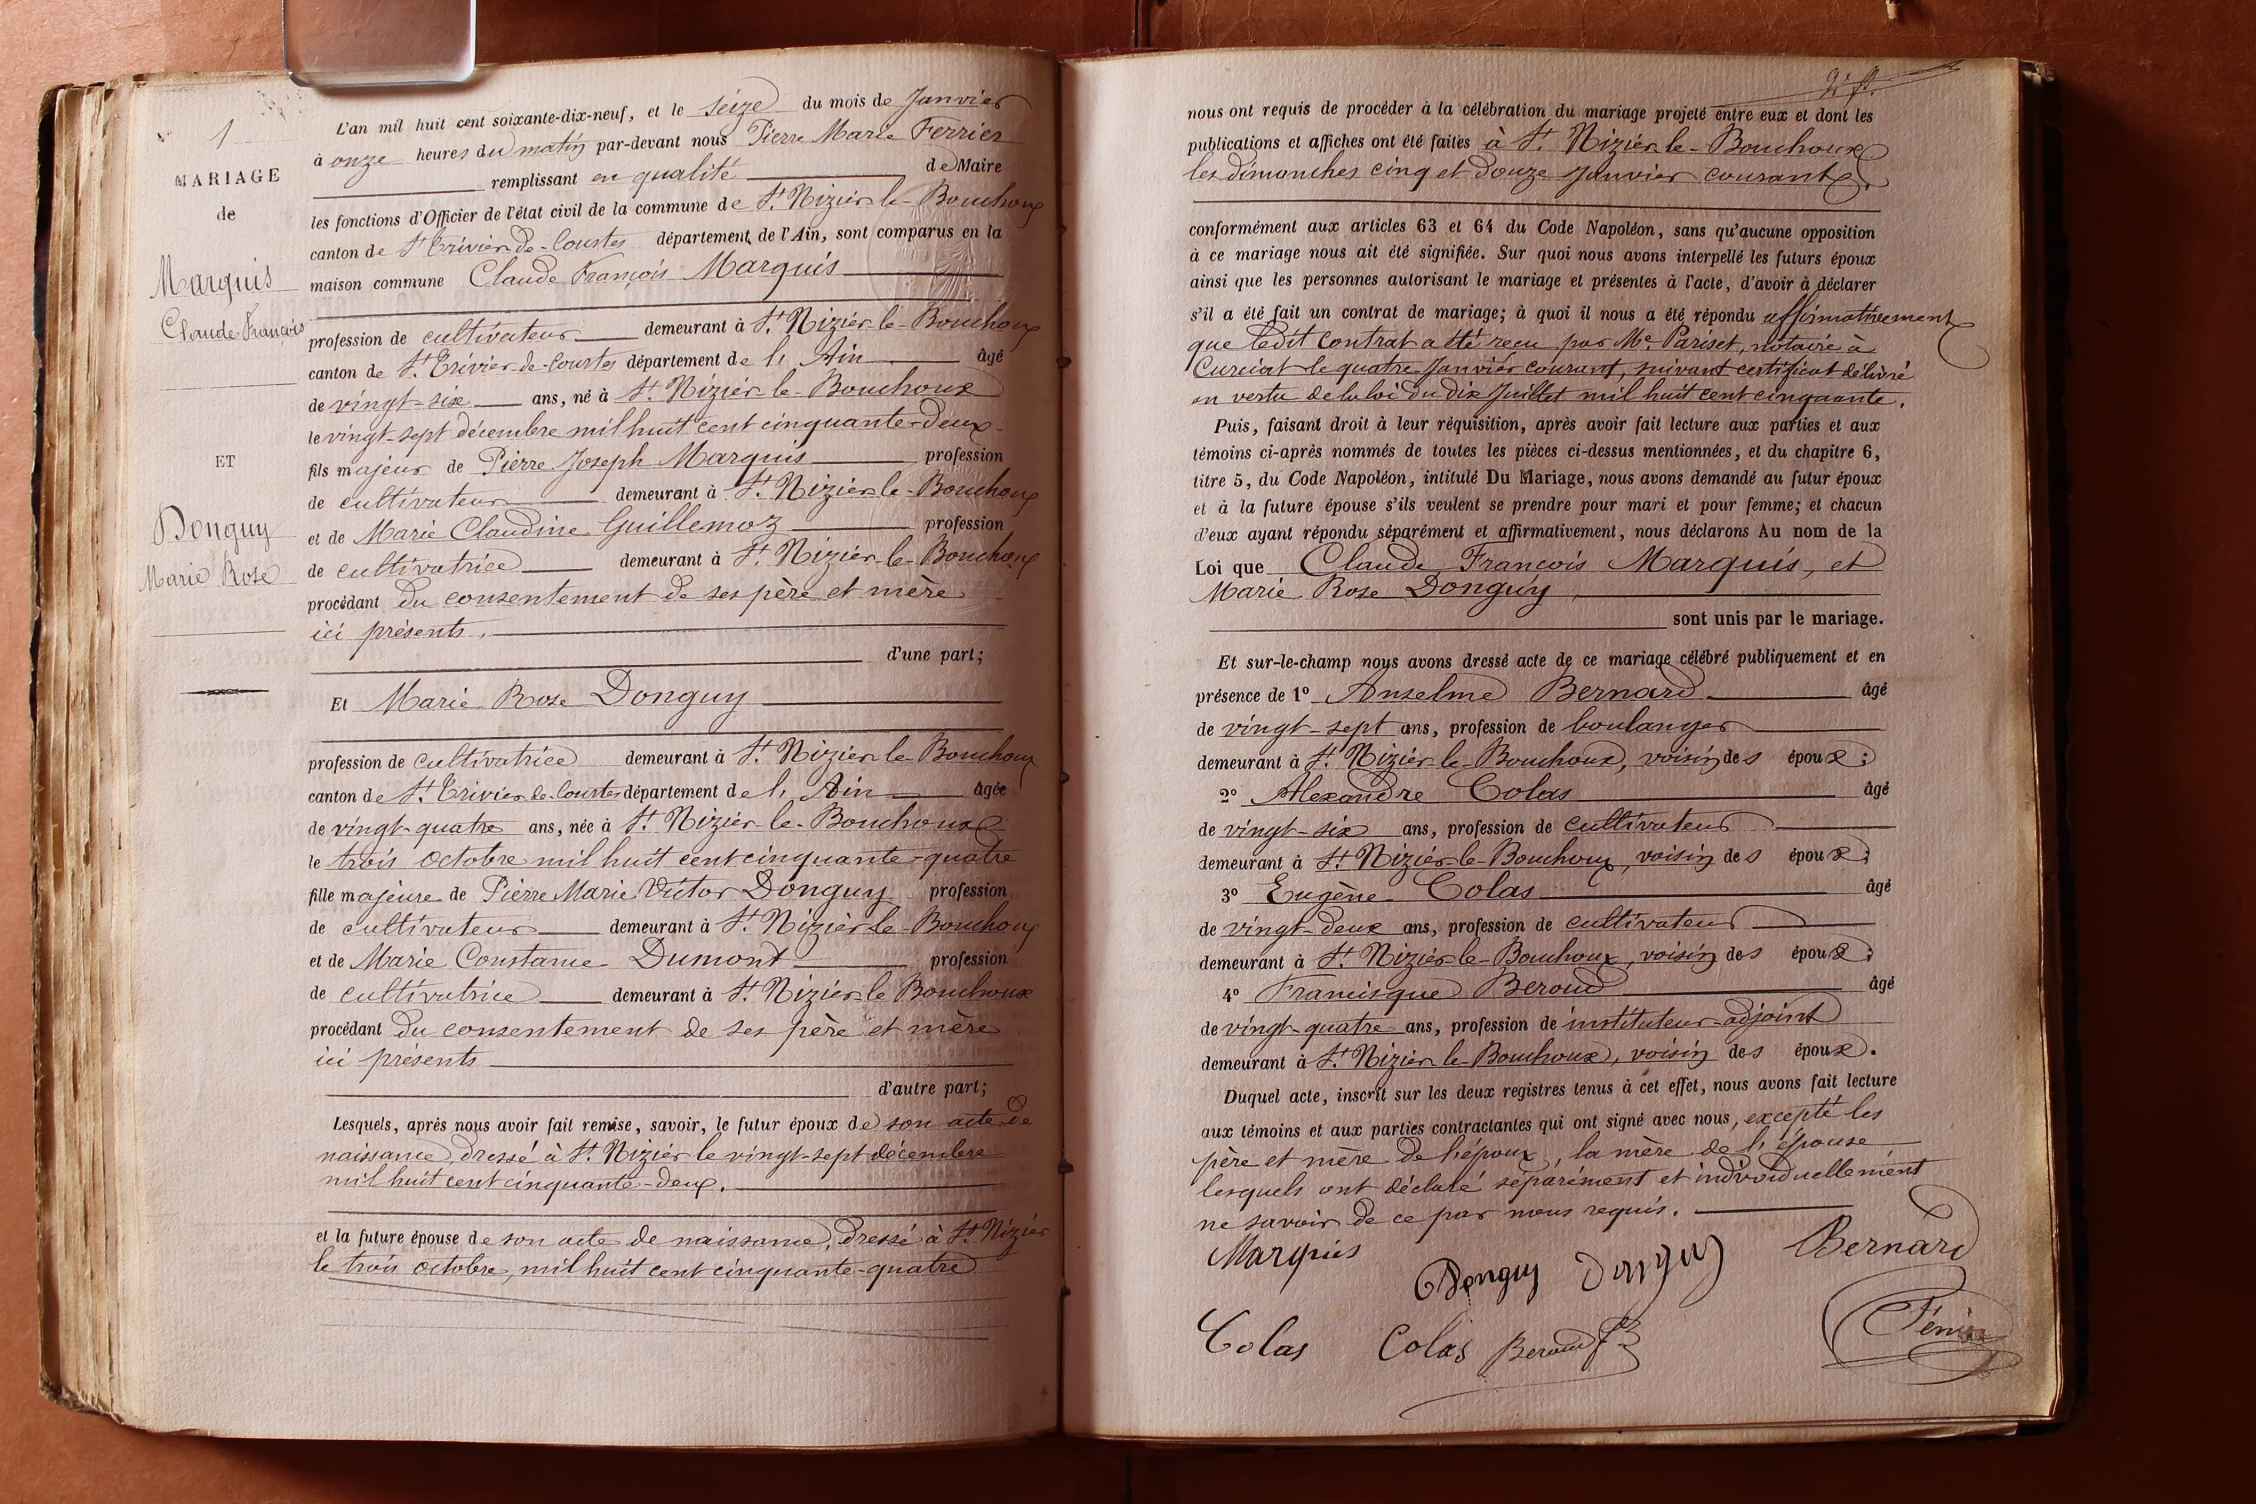 1
MARIAGE
de
Marquis
Claude-François
ET
Donguy
Marie Rose
L'an mil huit cent soixante-dix-neuf, et le seize du mois de Janvier
à onze heures du matin par-devant nous Pierre Marie Ferrier
remplissant en qualité de Maire
les fonctions d'Officier de l'état civil de la commune de St Nizier-le-Bouchoux
canton de St Trivier-de-Courtes département de l'Ain, sont comparus en la
maison commune Claude François Marquis
profession de cultivateur demeurant à St Nizier-le-Bouchoux
canton de St Trivier-de-Courtes département de l'Ain âgé
de vingt-six ans, né à St Nizier-le-Bouchoux
le vingt-sept décembre mil huit cent cinquante-deux
fils majeur de Pierre Joseph Marquis profession
de cultivateur demeurant à St Nizier-le-Bouchoux
et de Marie Claudine Guillemoz profession
de cultivatrice demeurant à St Nizier-le-Bouchoux
procédant du consentement de ses père et mère
ici présents.
d'une part;
Et Marie Rose Donguy
profession de cultivatrice demeurant à St Nizier-le-Bouchoux
canton de St Trivier-de-Courtes département de l'Ain âgée
de vingt-quatre ans, née à St Nizier-le-Bouchoux
le trois octobre mil huit cent cinquante-quatre
fille majeure de Pierre Marie Victor Donguy profession
de cultivateur demeurant à St Nizier-le-Bouchoux
et de Marie Constance Dumont profession
de cultivatrice demeurant à St Nizier-le-Bouchoux
procédant du consentement de ses père et mère
ici présents
d'autre part;
Lesquels, après nous avoir fait remise, savoir, le futur époux de son acte de
naissance, dressé à St Nizier le vingt-sept décembre
mil huit cent cinquante-deux.
et la future épouse de son acte de naissance, dressé à St Nizier
le trois octobre, mil huit cent cinquante-quatre
nous ont requis de procéder à la célébration du mariage projeté entre eux et dont les
publications et affiches ont été faites à St Nizier-le-Bouchoux
les dimanches cinq et douze Janvier courant.
conformément aux articles 63 et 64 du Code Napoléon, sans qu'aucune opposition
à ce mariage nous ait été signifiée. Sur quoi nous avons interpellé les futurs époux
ainsi que les personnes autorisant le mariage et présentes à l'acte, d'avoir à déclarer
s'il a été fait un contrat de mariage; à quoi il nous a été répondu affirmativement
que ledit contrat a été reçu par Me Pariset, notaire à
Curciat le quatre Janvier courant, suivant certificat délivré
en vertu de la loi du dix Juillet mil huit cent cinquante.
Puis, faisant droit à leur réquisition, après avoir fait lecture aux parties et aux
témoins ci-après nommés de toutes les pièces ci-dessus mentionnées, et du chapitre 6,
titre 5, du Code Napoléon, intitulé Du Mariage, nous avons demandé au futur époux
et à la future épouse s'ils veulent se prendre pour mari et pour femme; et chacun
d'eux ayant répondu séparément et affirmativement, nous déclarons Au nom de la
Loi que Claude François Marquis, et
Marie Rose Donguy
sont unis par le mariage.
Et sur-le-champ nous avons dressé acte de ce mariage célébré publiquement et en
présence de 1° Anselme Bernard âgé
de vingt-sept ans, profession de boulanger
demeurant à St Nizier-le-Bouchoux, voisin des époux;
2° Alexandre Colas âgé
de vingt-six ans, profession de cultivateur
demeurant à St Nizier-le-Bouchoux, voisin des époux;
3° Eugène Colas âgé
de vingt-deux ans, profession de cultivateur
demeurant à St Nizier-le-Bouchoux, voisin des époux;
4° Francisque Beroud âgé
de vingt-quatre ans, profession de instituteur-adjoint
demeurant à St Nizier-le-Bouchoux, voisin des époux.
Duquel acte, inscrit sur les deux registres tenus à cet effet, nous avons fait lecture
aux témoins et aux parties contractantes qui ont signé avec nous, excepté les
père et mère de l'époux, la mère de l'épouse
lesquels ont déclaré séparément et individuellement
ne savoir de ce par nous requis.
Marquis Donguy Donguy Bernard
Colas Colas Beroud